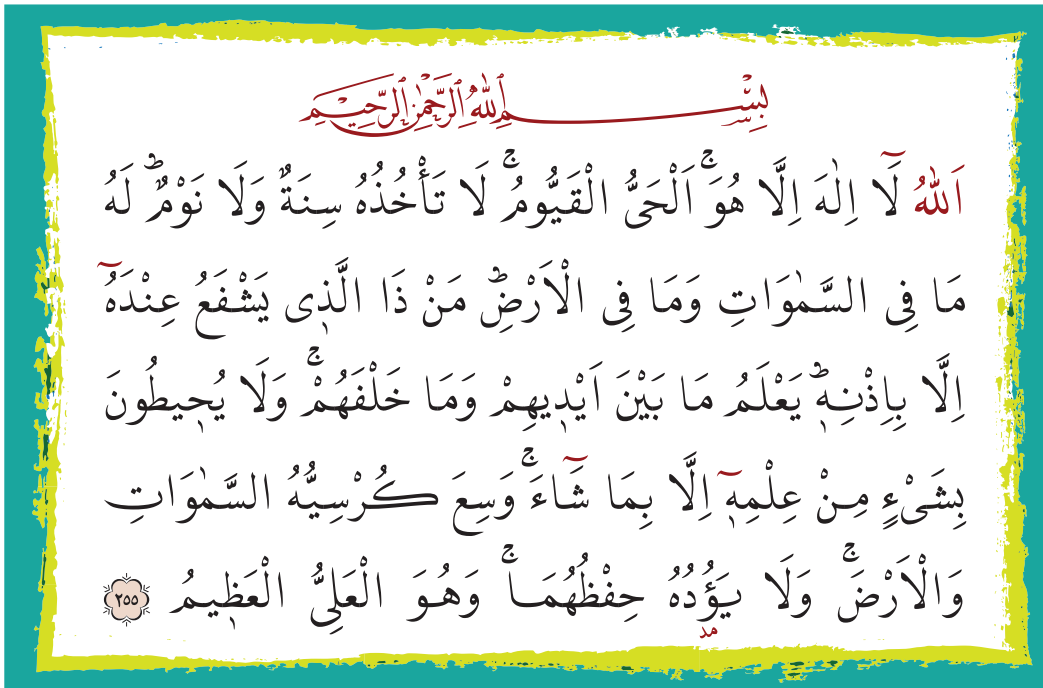 بِسْمِ اللهِ الرَّحْمٰنِ الرَّحِيمِ
اَللهُ لَٓا اِلٰهَ اِلَّا هُوَۚ اَلْحَىُّ الْقَيُّومُۚ لَا تَأْخُذُهُ سِنَةٌ وَلَا نَوْمٌؕ لَهُ
مَا فِى السَّمٰوَاتِ وَمَا فِى الْاَرْضِؕ مَنْ ذَا الَّذٖى يَشْفَعُ عِنْدَهُٓ
اِلَّا بِاِذْنِهٖؕ يَعْلَمُ مَا بَيْنَ اَيْدٖيهِمْ وَمَا خَلْفَهُمْۚ وَلَا يُحٖيطُونَ
بِشَىْءٍ مِنْ عِلْمِهٖٓ اِلَّا بِمَا شَٓاءَۚ وَسِعَ كُرْسِيُّهُ السَّمٰوَاتِ
وَالْاَرْضَۚ وَلَا يَؤُدُهُ حِفْظُهُمَاۚ وَهُوَ الْعَلِىُّ الْعَظٖيمُ ٢٥٥
مد